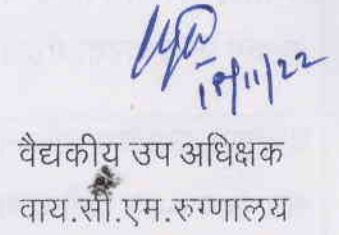 18/11/22
वैद्यकीय उप अधिक्षक
वाय.सी.एम.रुग्णालय